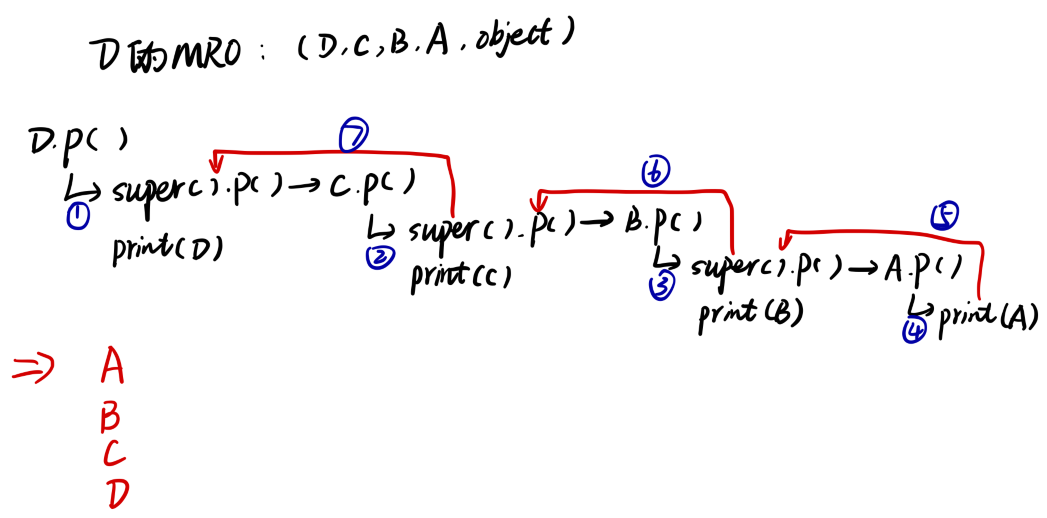 D的MRO : (D,C,B,A,object)
D.p( )
⑦
① ↳ super( ).p( ) → C.p( )
print(D)
⑥
② ↳ super( ).p( ) → B.p( )
print(C)
⑤
③ ↳ super( ).p( ) → A.p( )
print(B)
④ ↳ print(A)
⇒ A
B
C
D